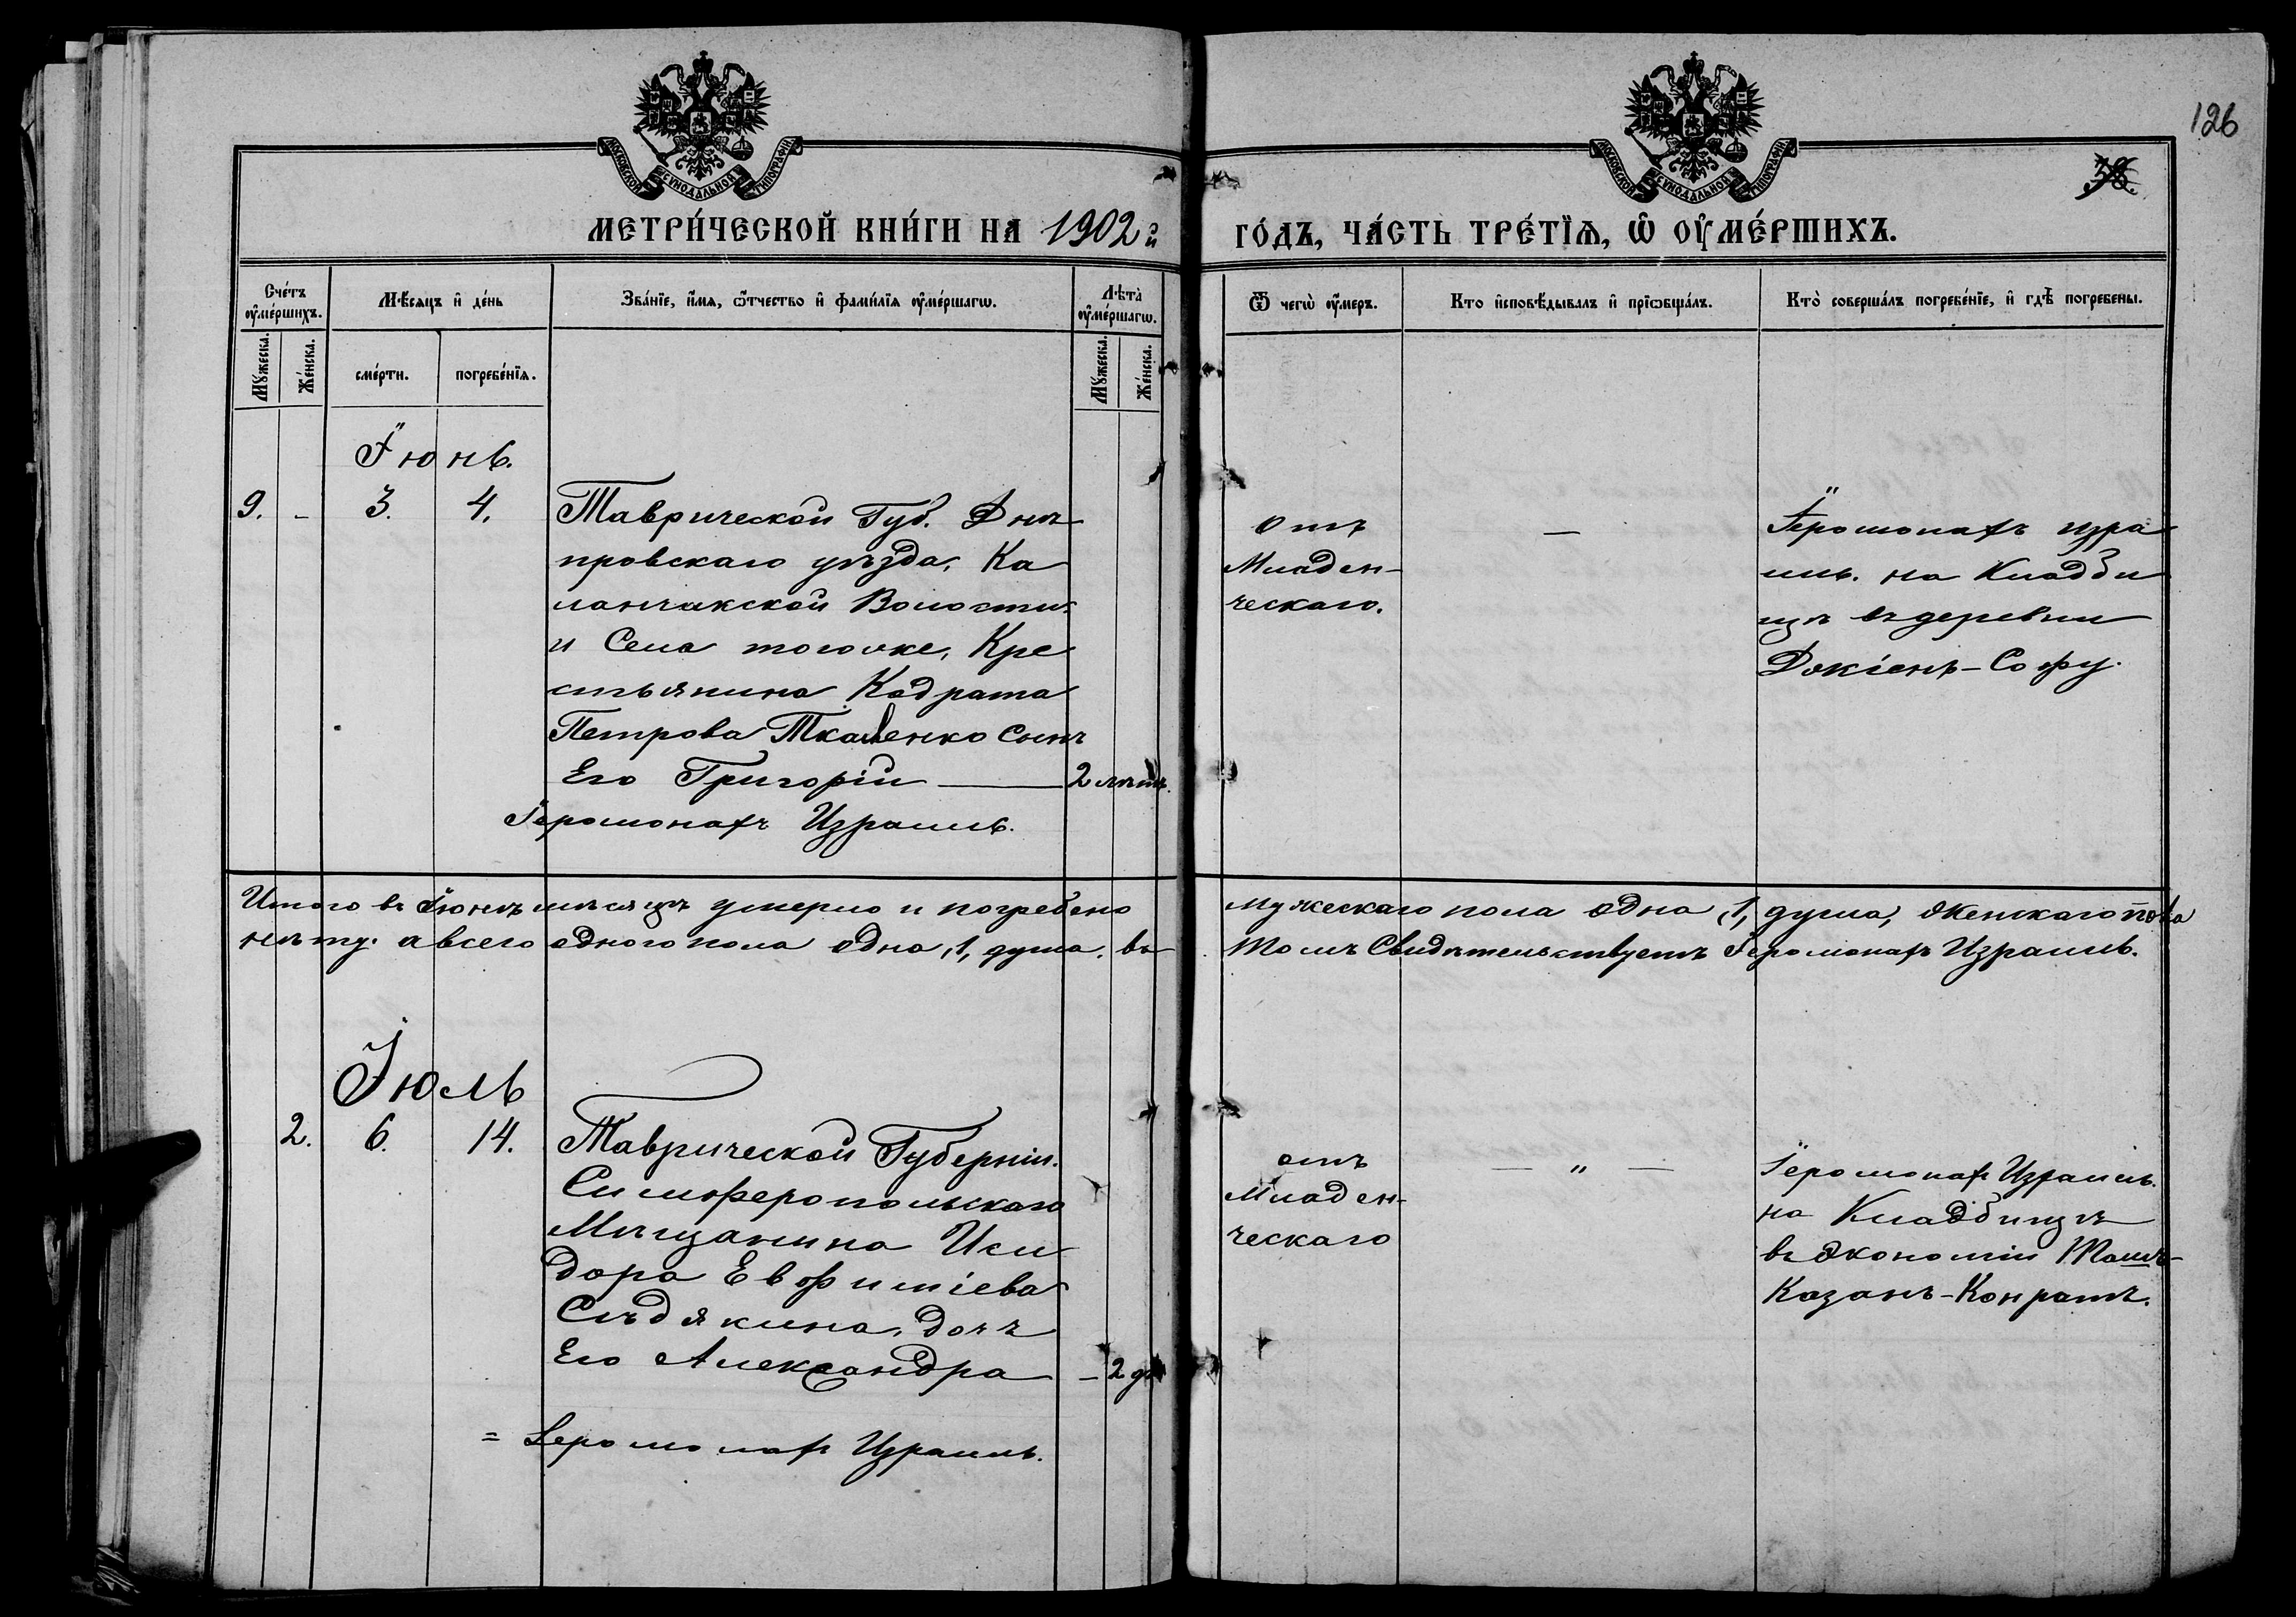 126
38.
МОСКОВСКОЙ СУНОДАЛЬНОЙ ТИПОГРАФІИ
МОСКОВСКОЙ СУНОДАЛЬНОЙ ТИПОГРАФІИ
МЕТРИ́ЧЕСКОЙ КНИ́ГИ НА 1902й ГО́ДЪ, ЧА́СТЬ ТРЕ́ТЇѦ, Ѡ҆ ОУ҆МЕ́РШИХЪ.
Сче́тъ оу҆ме́ршихъ.
Мꙋ́жеска.
Же́нска.
Мѣ́сяцъ и҆ де́нь
сме́рти.
погребе́нїя.
Зва́нїе, и҆́мя, ѻ҆́тчество и҆ фами́лїя оу҆ме́ршагѡ.
Лѣ́та оу҆ме́ршагѡ.
Мꙋ́жеска.
Же́нска.
Ѿ чегѡ̀ оу҆́меръ.
Кто и҆сповѣ́дывалъ и҆ прїѡбща́лъ.
Кто̀ соверша́лъ погребе́нїе, и҆ гдѣ̀ погребены.
Іюнь.
9. - 3. 4.
Таврической Губ. Днѣ
провскаго уѣзда, Ка
ланчакской Волости
и Села тогоже, Кре
стьянина Кадрата
Петрова Ткаченко Сынъ
Его Григорій — 2 лѣтъ.
Іеромонахъ Израиль.
Отъ
Младен-
ческаго.
—
Іеромонахъ Изра
иль. на Кладби
щѣ въ деревни
Джіенъ-Софу.
Итого въ Іюнѣ мѣсяцѣ умерло и погребено мужескаго пола одна ,1, душа, Женскаго пола
нѣту. а всего одного пола одна ,1, душа. въ томъ Свидѣтельствуетъ Іеромонахъ Израиль.
Іюль
2. 6. 14.
Таврической Губерніи.
Симферопольскаго
Мѣщанина Иси
дора Евфиміева
Сѣдякина, дочъ
Его Александра - 2 дн
= Іеромонахъ Израиль.
отъ
Младен-
ческаго
— " —
Іеромонахъ Израиль.
на Кладбищѣ
въ Экономіи Ташъ-
Казанъ-Конратъ.